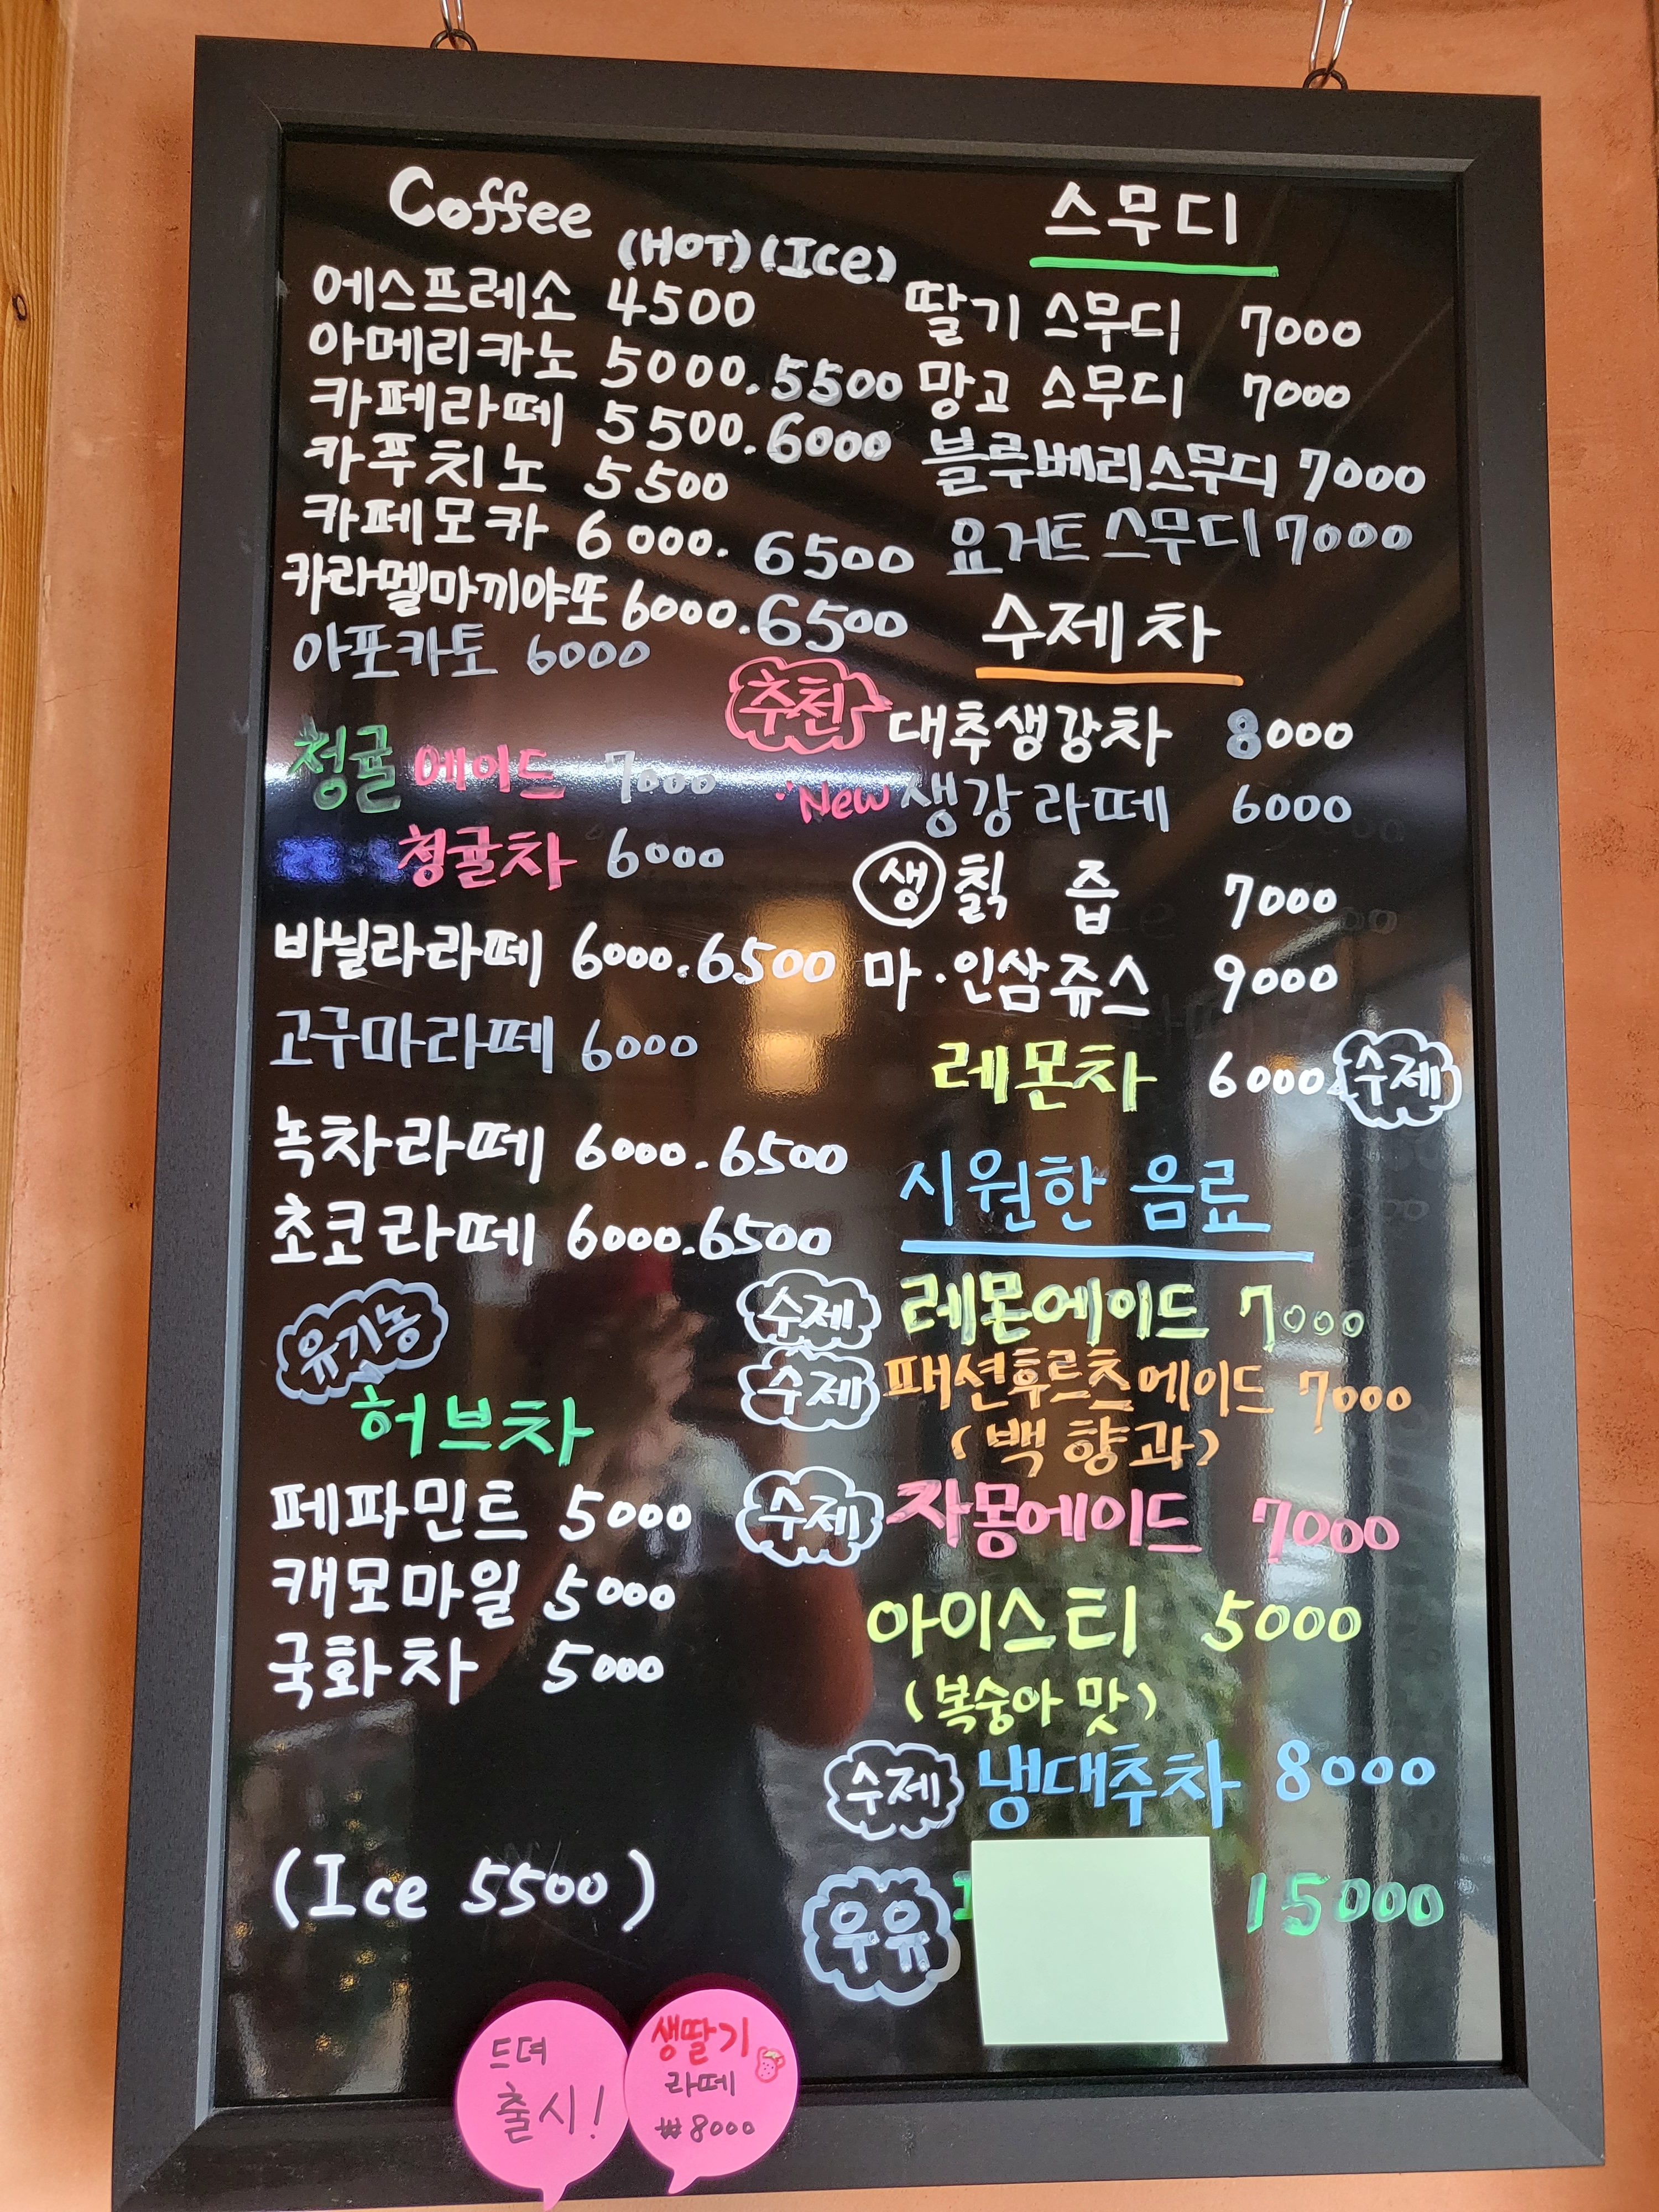 Coffee (HOT) (Ice)
에스프레소 4500
아메리카노 5000.5500
카페라떼 5500.6000
카푸치노 5500
카페모카 6000.6500
카라멜마끼야또 6000.6500
아포카토 6000
청귤에이드 7000
청귤차 6000
바닐라라떼 6000.6500
고구마라떼 6000
녹차라떼 6000.6500
초코라떼 6000.6500
유기농
허브차
페파민트 5000
캐모마일 5000
국화차 5000
(Ice 5500)
스무디
딸기 스무디 7000
망고 스무디 7000
블루베리스무디 7000
요거트스무디 7000
수제차
추천 대추생강차 8000
New 생강라떼 6000
생 칡 즙 7000
마·인삼쥬스 9000
레몬차 6000 수제
시원한 음료
수제 레몬에이드 7000
수제 패션후르츠에이드 7000
(백향과)
수제 자몽에이드 7000
아이스티 5000
(복숭아 맛)
수제 냉대추차 8000
우유 15000
드뎌
출시!
생딸기
라떼
₩8000